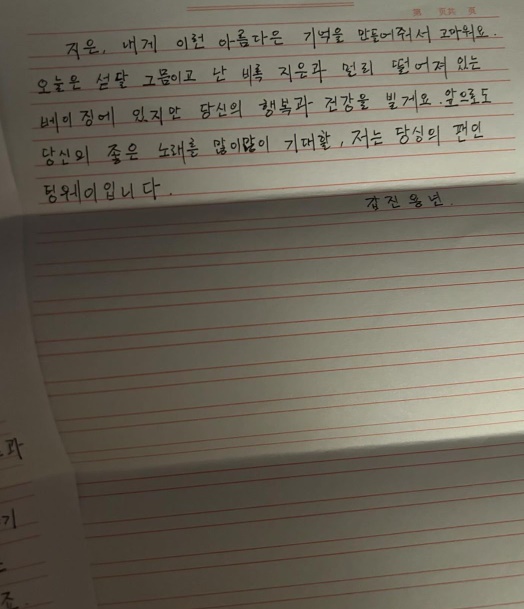 지은, 내게 이런 아름다은 기억을 만들어줘서 고마워요.
오늘은 섣달 그믐이고 난 비록 지은과 멀리 떨어져 있는
베이징에 있지만 당신의 행복과 건강을 빌게요. 앞으로도
당신의 좋은 노래를 많이많이 기대할, 저는 당신의 팬인
팅웨이입니다.
갑진용년.
과
기
조